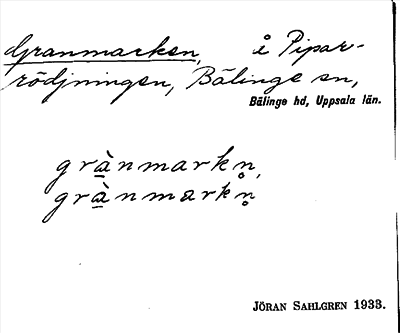 Granmarken, å Pipar-
rödjningen, Bälinge sn,
Bälinge hd, Uppsala län.
grànmarkn̥,
grànmarkn̥
JÖRAN SAHLGREN 1933.